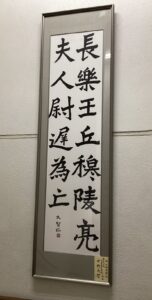 長樂王丘穆陵亮
夫人尉遲為亡